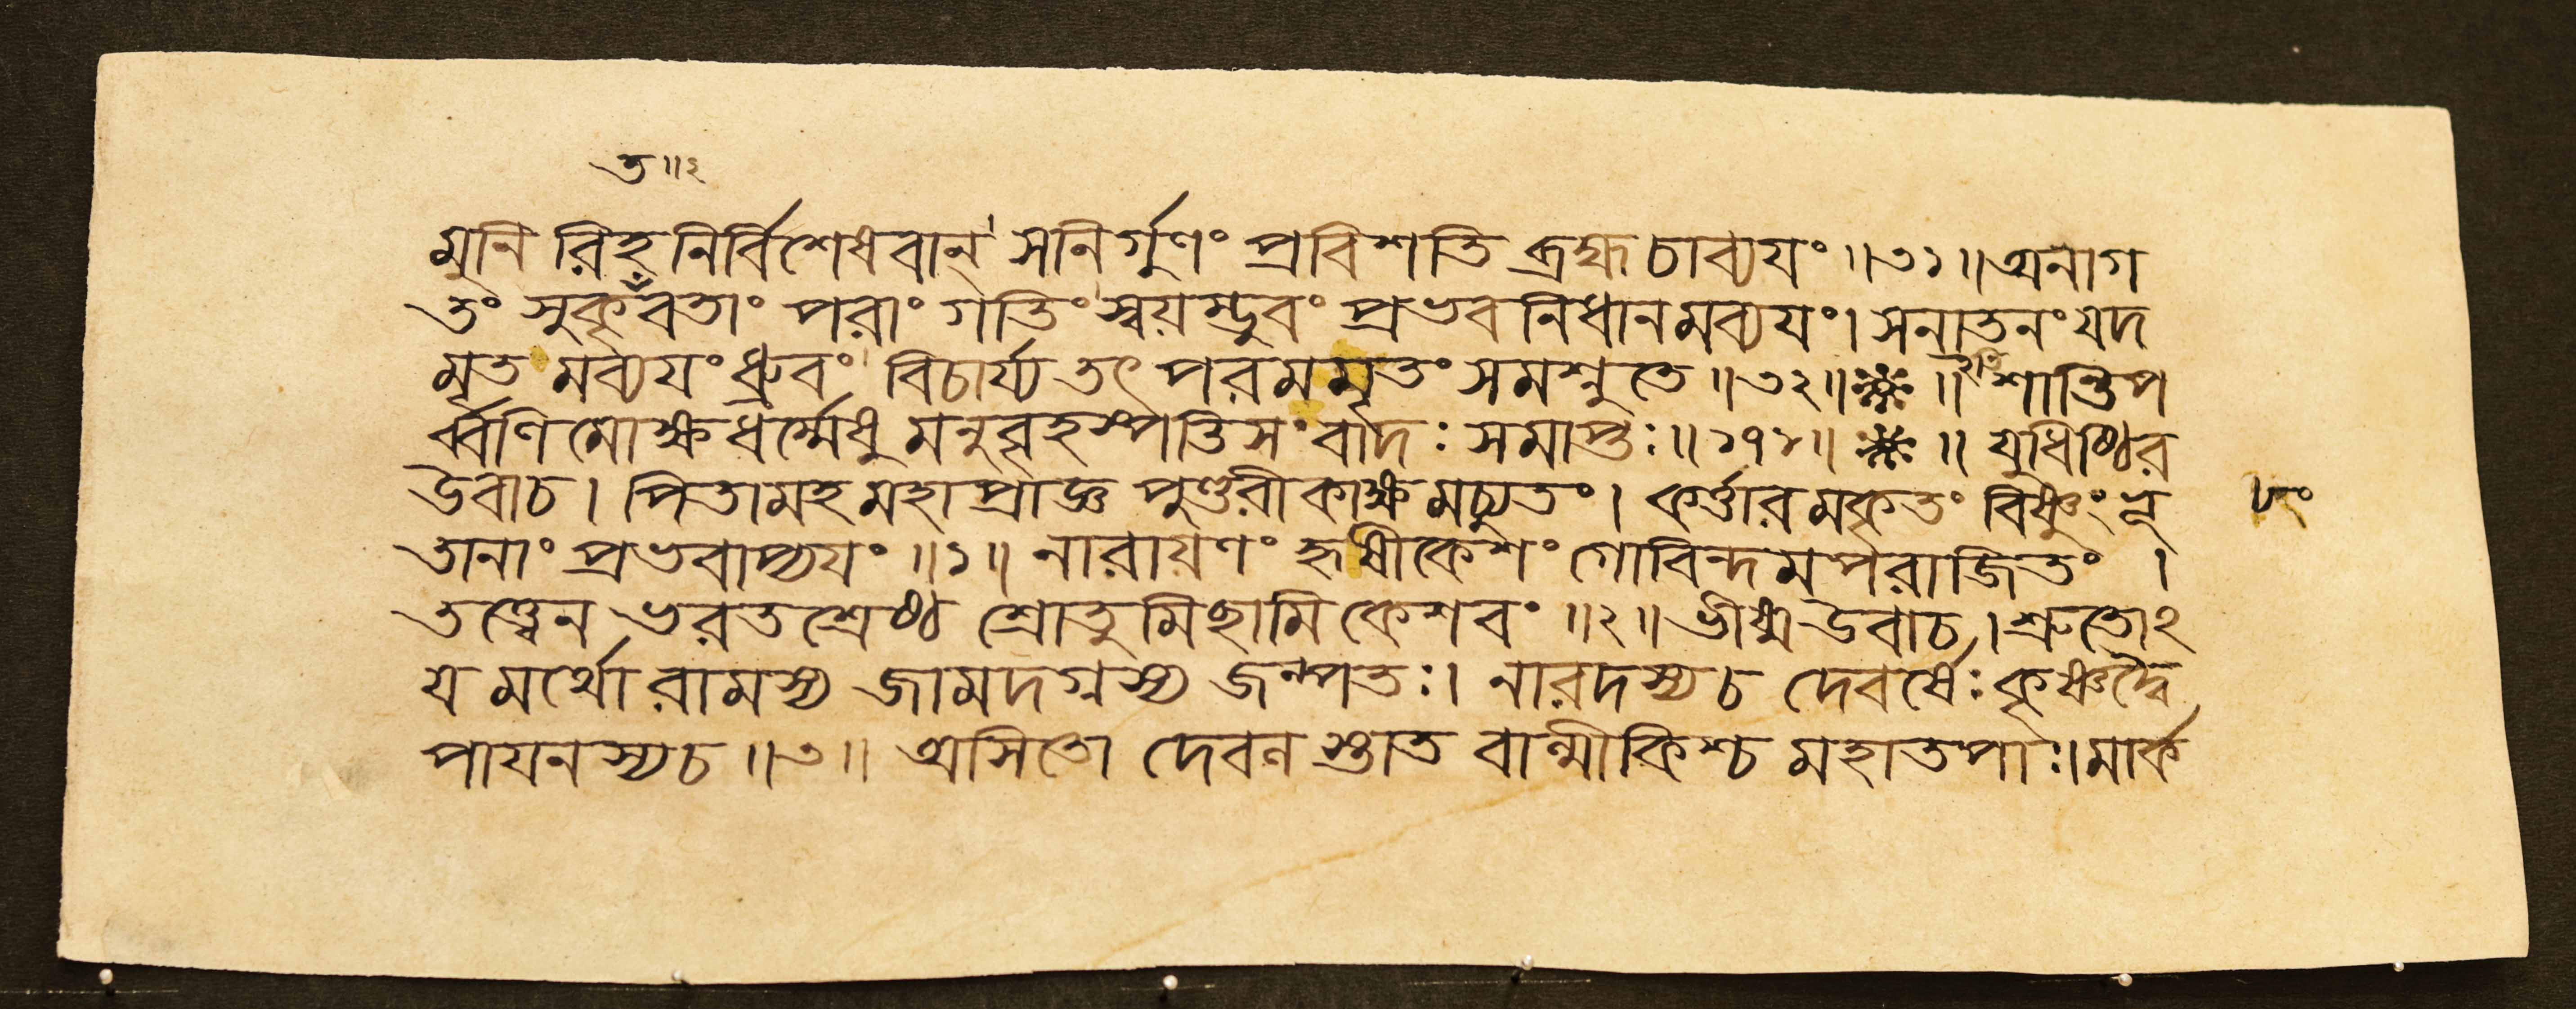 ত॥২
মুনিরিহ নির্বিশেষবান্ স নির্গুণং প্রবিশতি ব্রহ্ম চাব্যয়ং ॥৩১॥ অনাগ
তং সুকৃবতাং পরাং গতিং স্বয়ম্ভুবং প্রভবনিধানমব্যয়ং। সনাতনং যদ
মৃতমব্যয়ং ধ্রুবং বিচার্য্য তৎ পরমমমৃতং সমশ্নুতে ॥৩২॥ ॥ শান্তিপ
র্ব্বণি মোক্ষধর্ম্মেষু মনুবৃহস্পতিসংবাদঃ সমাপ্তঃ॥ ॥ যুধিষ্ঠির
উবাচ। পিতামহ মহাপ্রাজ্ঞ পুণ্ডরীকাক্ষমচ্যুতং। কর্ত্তারমকৃতং বিষ্ণুং ভূ
তানাং প্রভবাপ্যয়ং ॥১॥ নারায়ণং হৃষীকেশং গোবিন্দমপরাজিতং ।
তত্ত্বেন ভরতশ্রেষ্ঠ শ্রোতুমিছামি কেশবং ॥২॥ ভীষ্ম উবাচ। শ্রুতোঽ
য়মর্থো রামস্য জামদগ্নস্য জল্পতঃ। নারদস্য চ দেবর্ষেঃ কৃষ্ণদ্বৈ
পায়নস্য চ ॥৩॥ অসিতো দেবলস্তাত বাল্মীকিশ্চ মহাতপাঃ। মার্ক